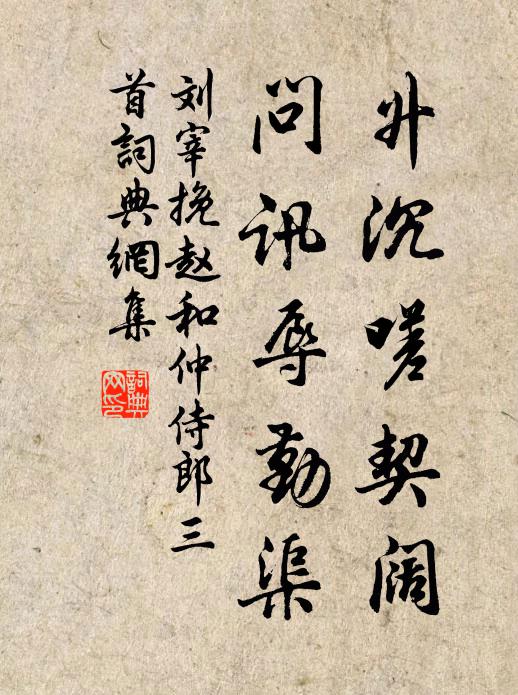 升沉嗟契阔
问讯辱勤渠
刘宰挽赵和仲侍郎三
首詞典網集
詞典
网印